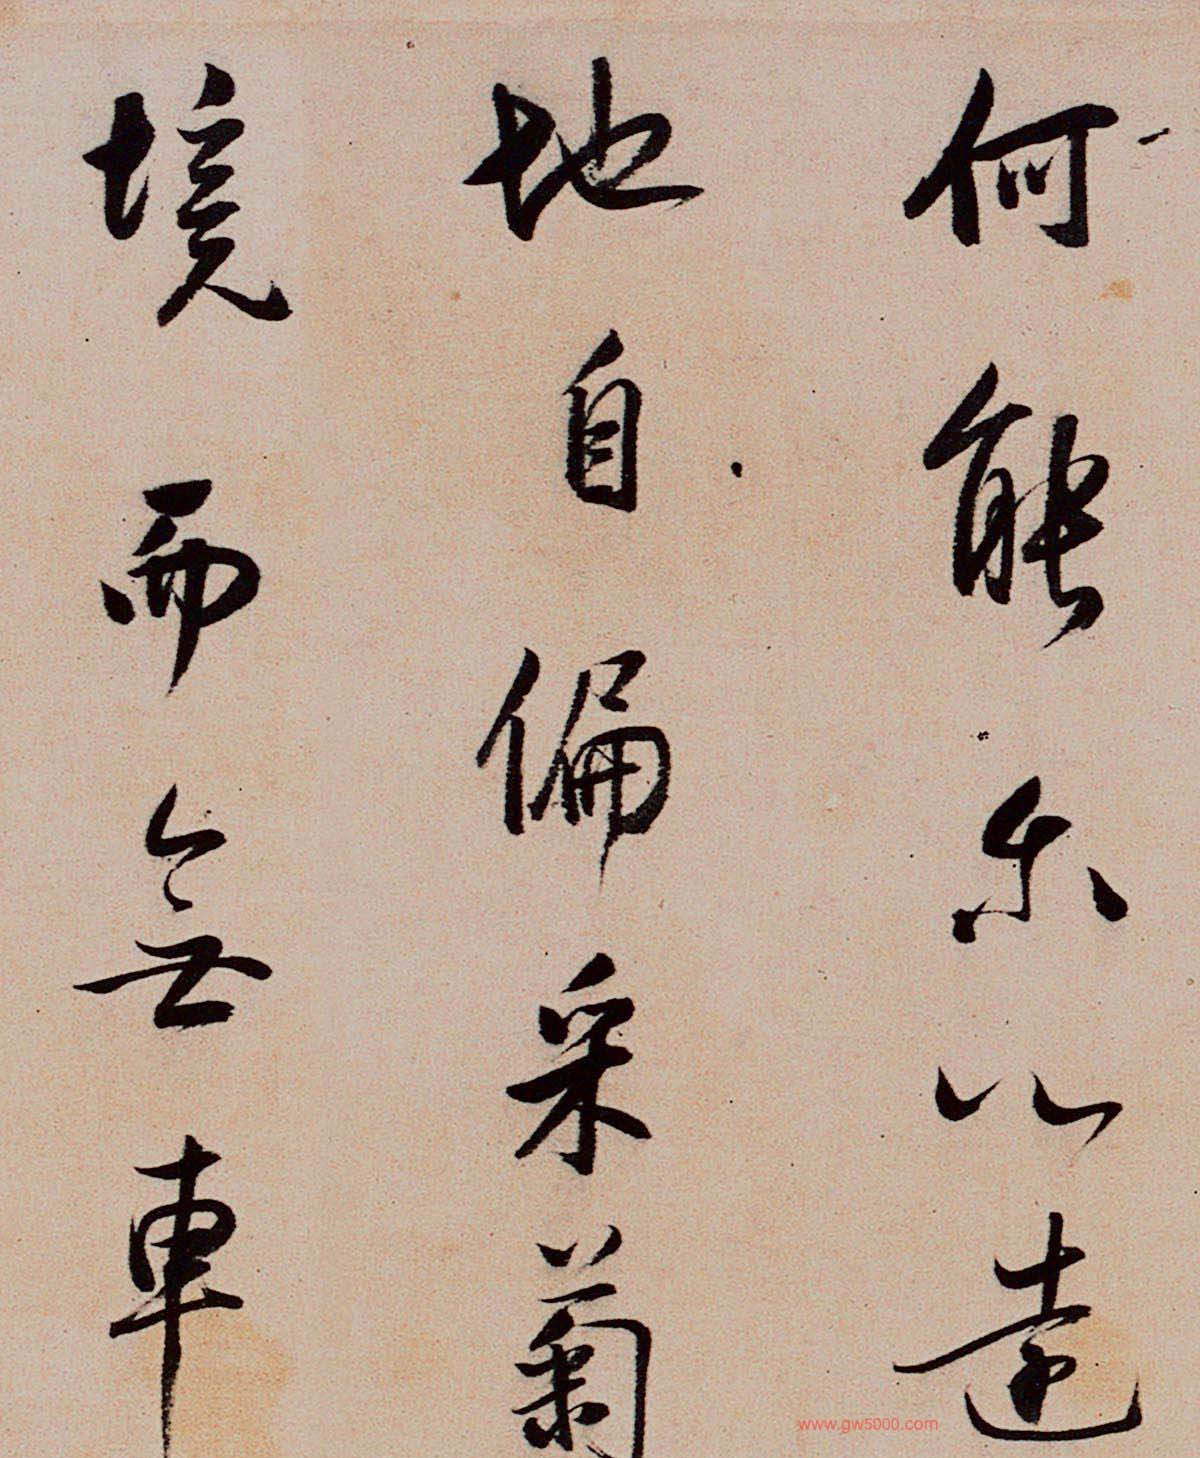 何能尔心遠
地自偏采菊
境而無車
www.gw5000.com